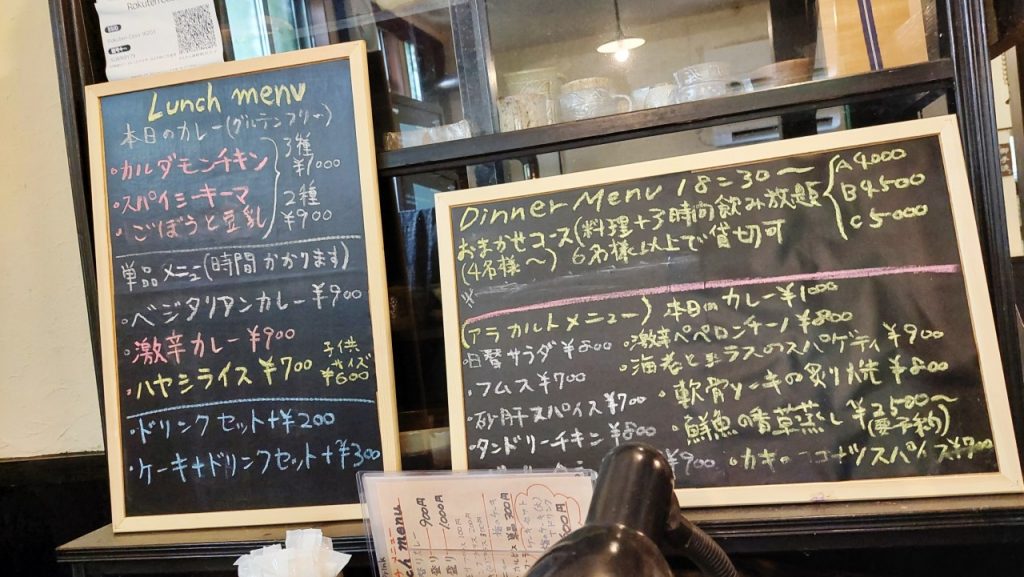 Lunch menu
本日のカレー(グルテンフリー)
・カルダモンチキン
・スパイシーキーマ
・ごぼうと豆乳
3種
¥1000
2種
¥900
単品メニュー(時間かかります)
・ベジタリアンカレー ¥900
・激辛カレー ¥900
・ハヤシライス ¥700
子供サイズ
¥600
・ドリンクセット+¥200
・ケーキ+ドリンクセット+¥300
Dinner Menu 18:30〜
おまかせコース(料理+3時間飲み放題
(4名様〜) 6名様以上で貸切可
A 4000
B 4500
C 5000
(アラカルトメニュー)
・日替サラダ ¥600
・フムス ¥700
・砂肝スパイス ¥700
・タンドリーチキン ¥800
¥900
本日のカレー ¥1000
・激辛ペペロンチーノ ¥800
・海老としラスのスパゲティ ¥900
・軟骨ソーキの炙り焼 ¥800
・鮮魚の香草蒸し ¥2500〜
(要予約)
・カキのココナツスパイス ¥700
menu
900円
1000円